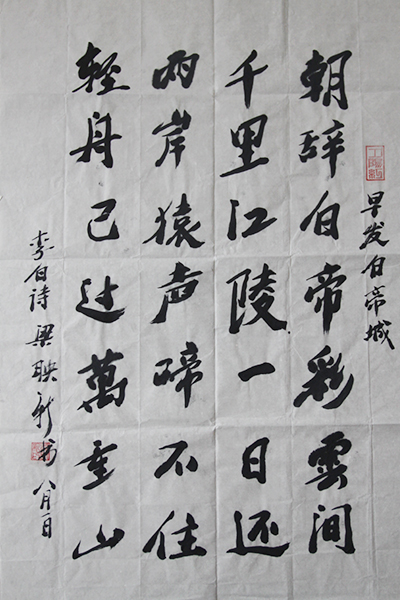 早发白帝城
朝辞白帝彩雲间
千里江陵一日还
两岸猿声啼不住
輕舟已过萬重山
李白诗 梁映新书 八月一日